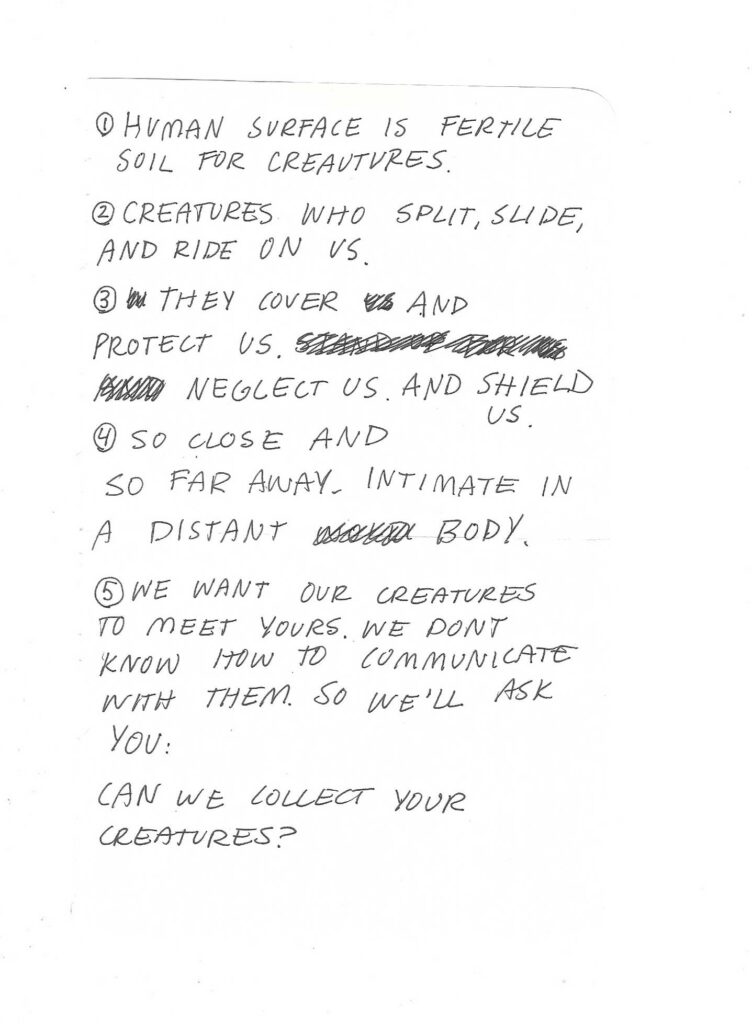 ① HUMAN SURFACE IS FERTILE
SOIL FOR CREAUTURES.
② CREATURES WHO SPLIT, SLIDE,
AND RIDE ON US.
③ THEY COVER AND
PROTECT US.
NEGLECT US. AND SHIELD
US.
④ SO CLOSE AND
SO FAR AWAY. INTIMATE IN
A DISTANT BODY.
⑤ WE WANT OUR CREATURES
TO MEET YOURS. WE DONT
KNOW HOW TO COMMUNICATE
WITH THEM. SO WE'LL ASK
YOU:
CAN WE COLLECT YOUR
CREATURES?